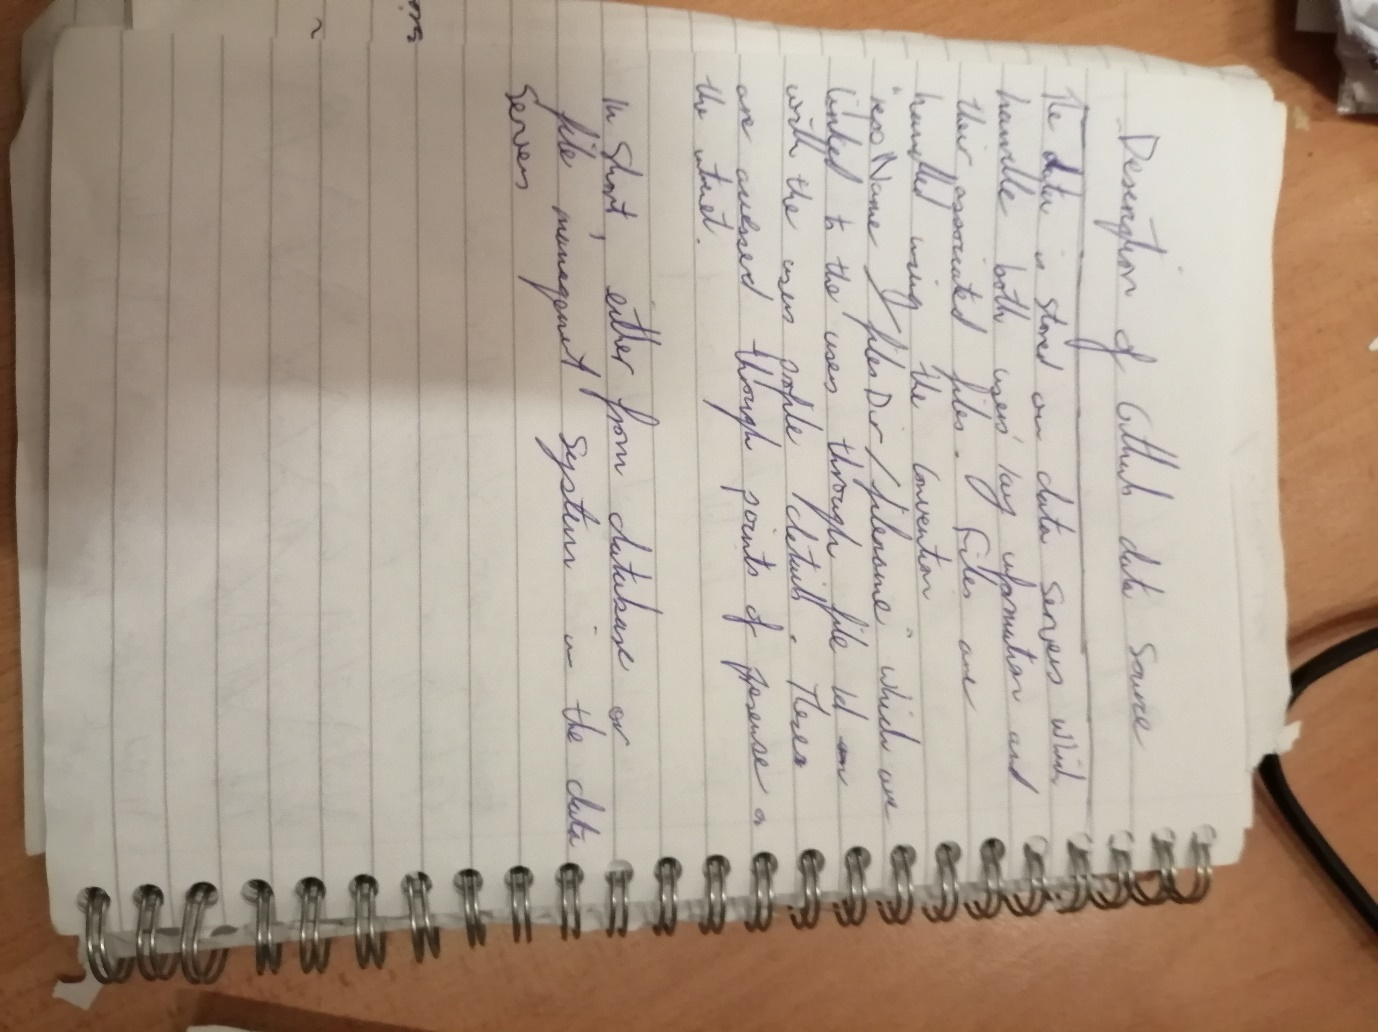 Description of Github data source
The data is stored on data servers which
handle both users' key information and
their associated files. Files are
handled using the convention
Name / filesDir / filename" which are
linked to the users through file id on
with the users profile details. These
are accessed through points of presense
the
In short, either from database or
file management system in the data
servers